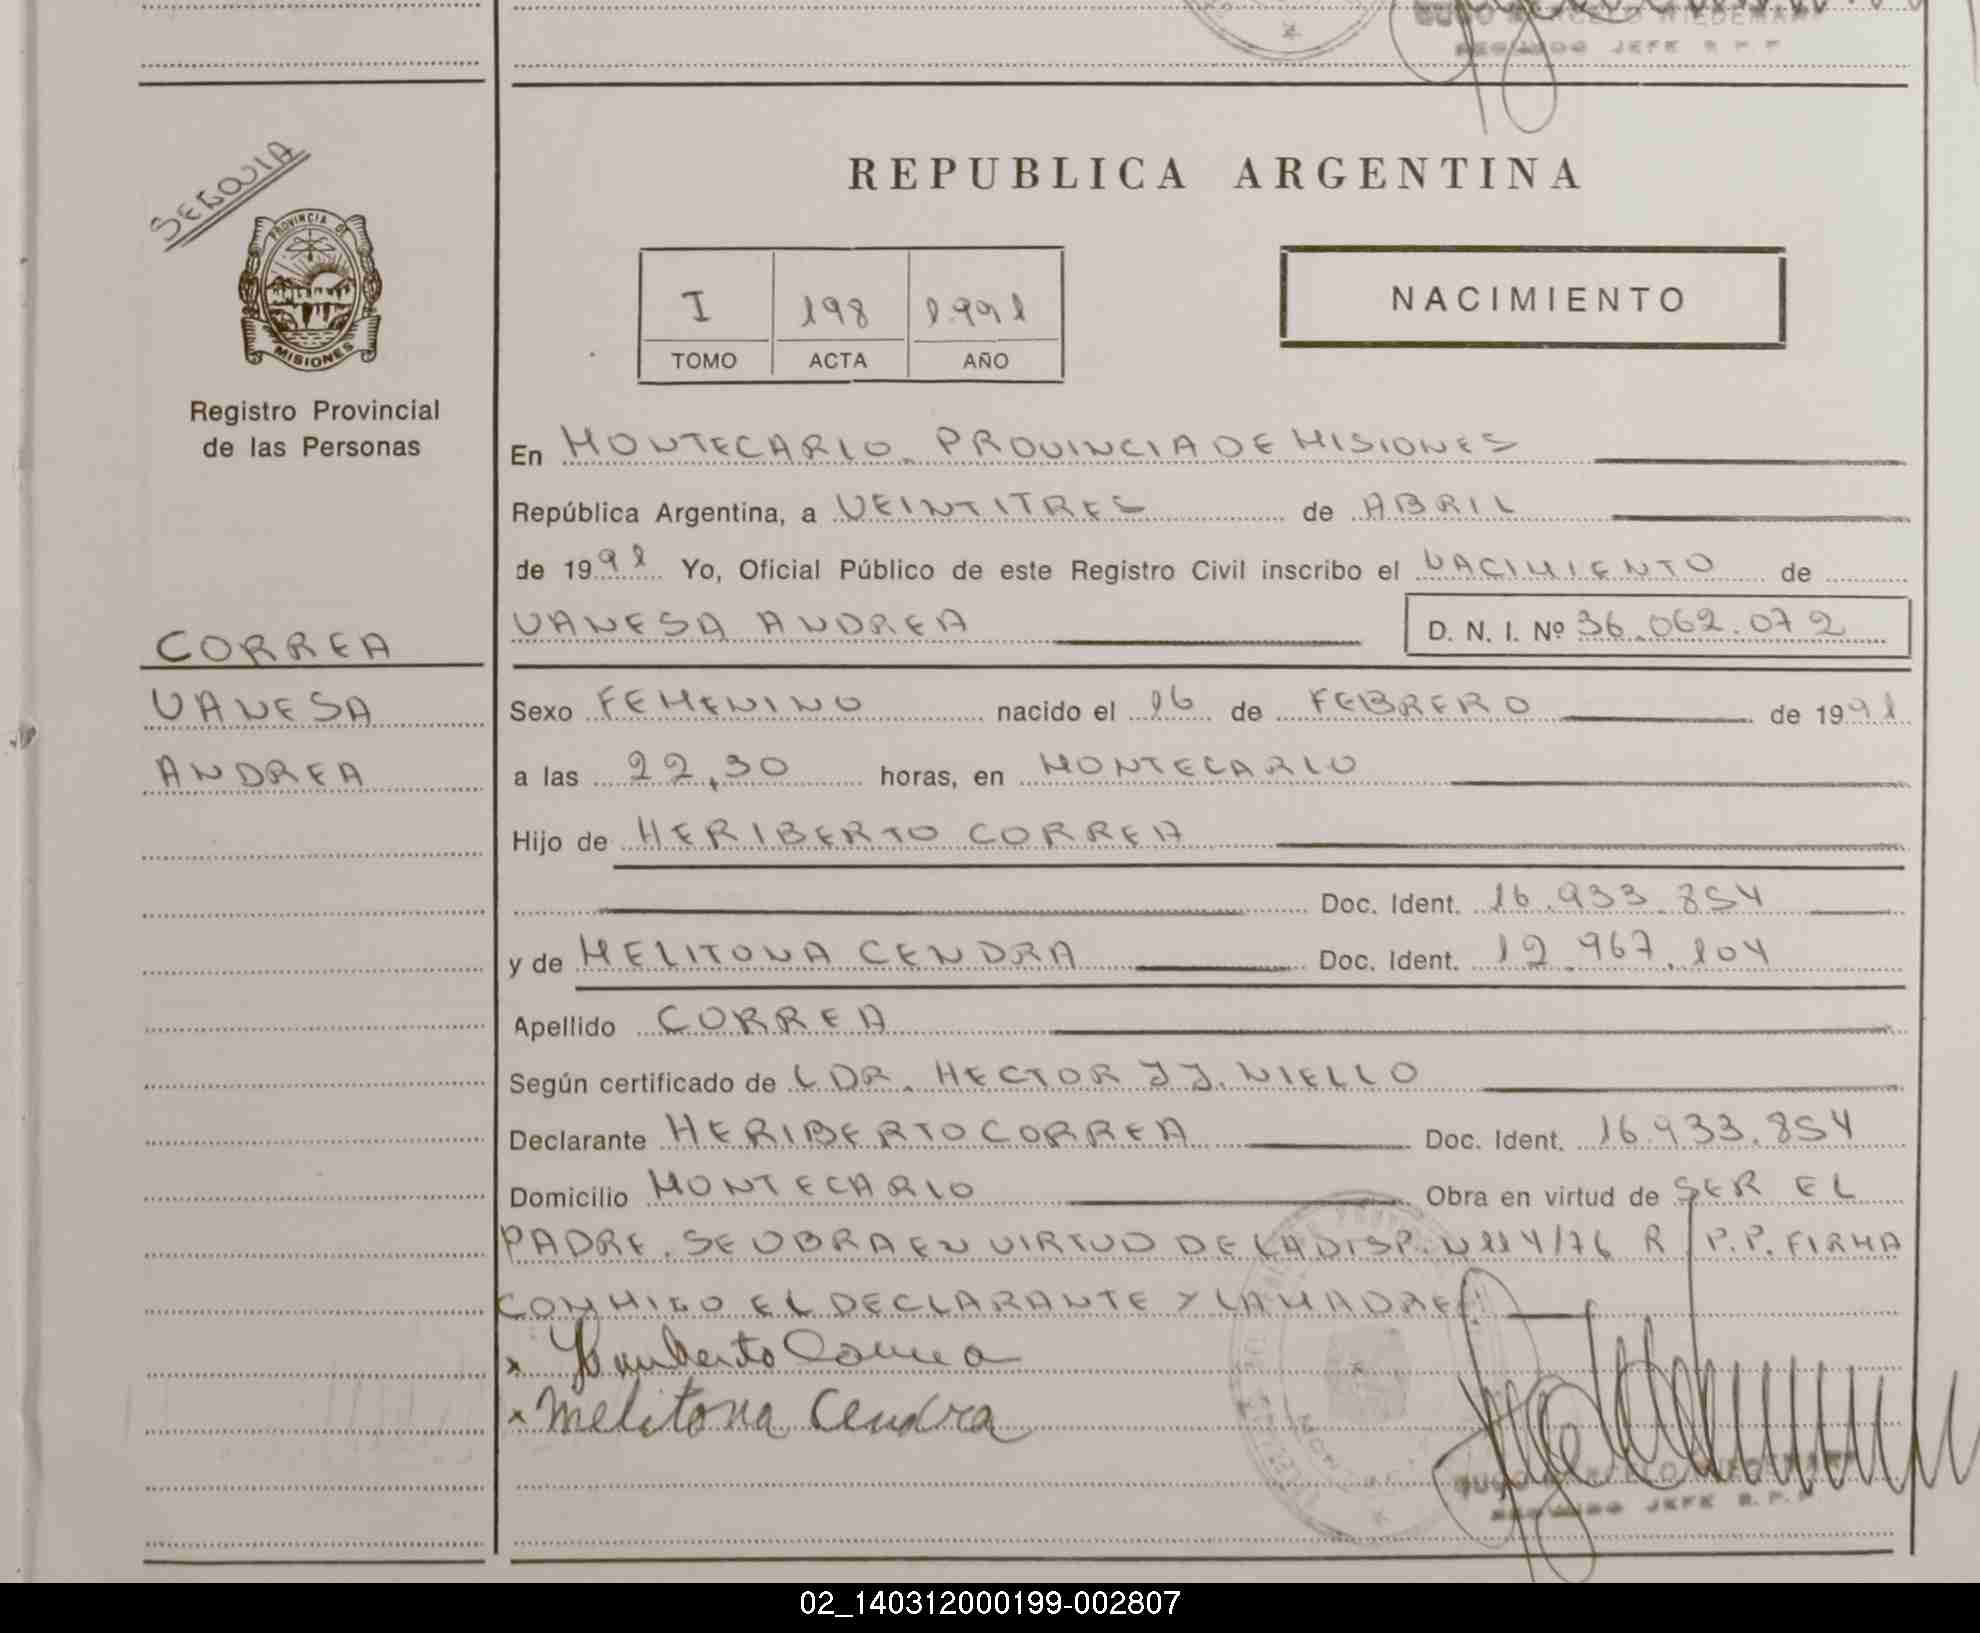 SEGUNDO JEFE R P P
REPUBLICA ARGENTINA
PROVINCIA DE
MISIONES
Registro Provincial
de las Personas
I 198 1991
TOMO ACTA AÑO
NACIMIENTO
En MONTECARLO. PROVINCIA DE MISIONES
República Argentina, a VEINTITRES de ABRIL
de 1991 Yo, Oficial Público de este Registro Civil inscribo el NACIMIENTO de
VANESA ANDREA D. N. I. Nº 36.062.072
CORREA
VANESA
ANDREA
Sexo FEMENINO nacido el 16 de FEBRERO de 1991
a las 22,30 horas, en MONTECARLO
Hijo de HERIBERTO CORREA
Doc. Ident. 16.933.854
y de MELITONA CENDRA Doc. Ident. 12.967.104
Apellido CORREA
Según certificado de LDR. HECTOR J J. NIELLO
Declarante HERIBERTO CORREA Doc. Ident. 16.933.854
Domicilio MONTECARLO Obra en virtud de SER EL
PADRE. SE OBRA EN VIRTUD DE LA DISP. N 114/76 R.P.P. FIRMA
CONMIGO EL DECLARANTE Y LA MADRE
x Heriberto Correa
x Melitona Cendra
SEGUNDO JEFE R.P.P
02_140312000199-002807